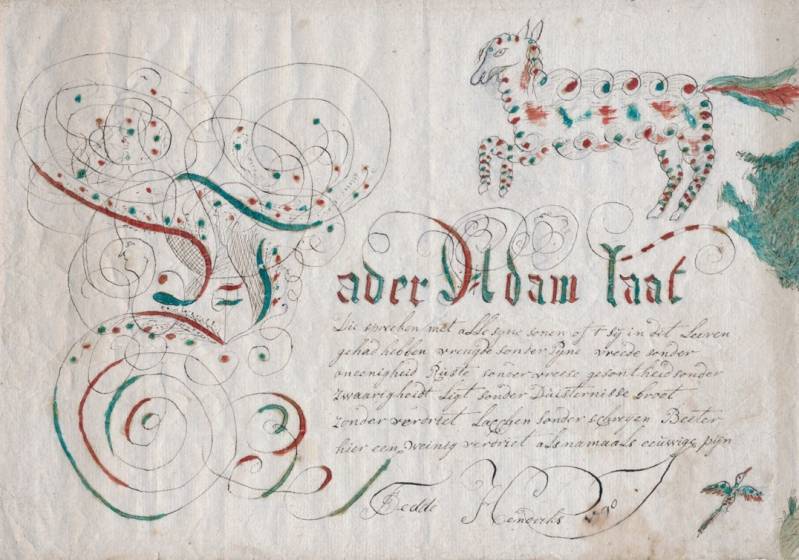 Vader Adam laat
Lie spreken met alle syne sonen of t sy in dit Leeven
gehad hebben vreugde sonder pyne vreede sonder
oneenigheid Ruste sonder vreese gesontheid sonder
zwaarigheidt Ligt sonder Duisternisse broot
zonder verdriet Lacchen sonder schreyen Beeter
hier een weinig verdriet als namaals eeuwige pijn
Hendriks